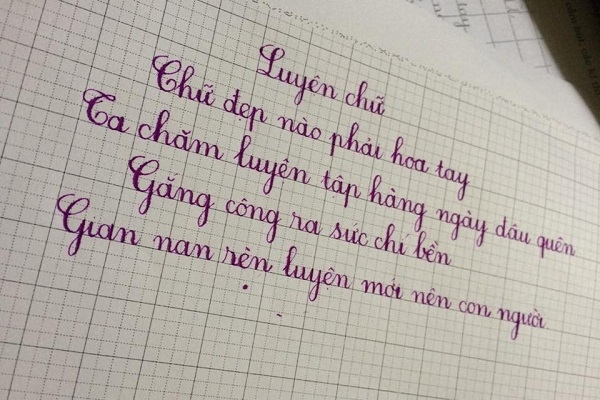 Luyện chữ
Chữ đẹp nào phải hoa tay
Ta chăm luyện tập hàng ngày đâu quên
Gắng công ra sức chí bền
Gian nan rèn luyện mới nên con người